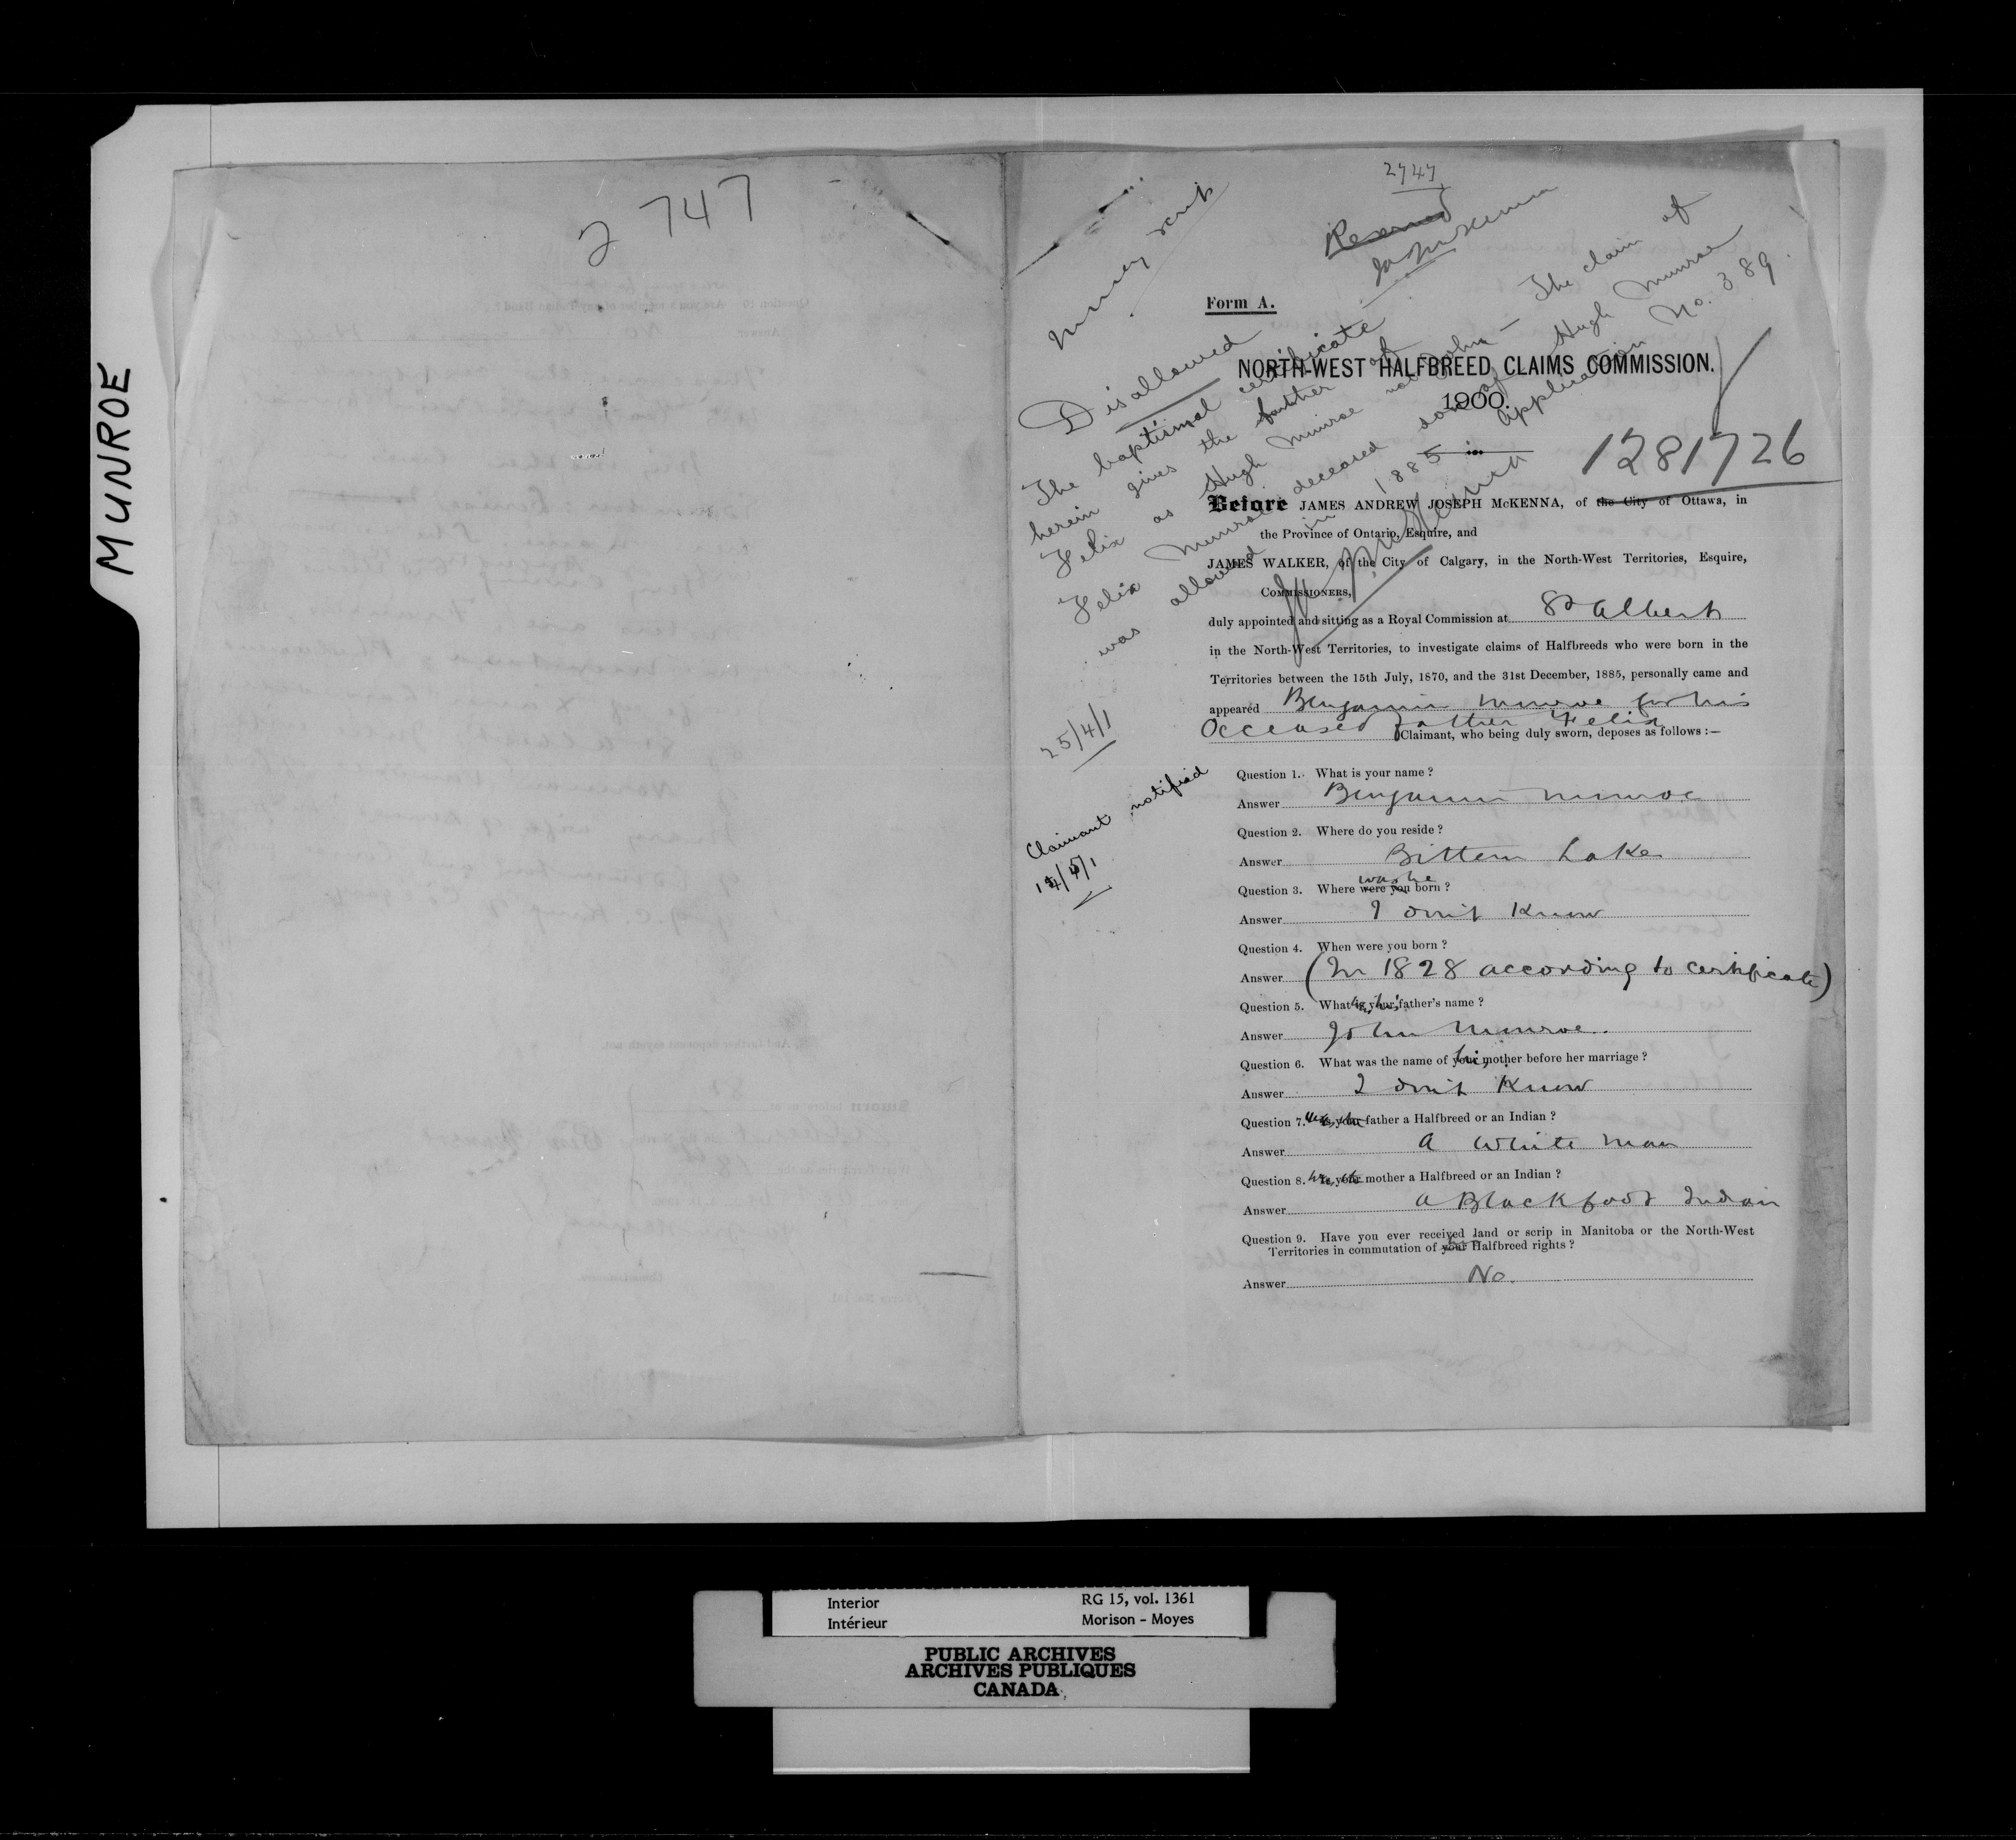 MUNROE
2747
2747
money scrip
Reserved
JAJMcKenna
Form A.
Disallowed
The baptismal certificate
herein gives the father of
Felix as Hugh Munroe not John — The claim of
Felix Munroe deceased son of Hugh Munroe
was allowed in 1885 in application No. 389.
JAJMcKenna
25/4/1
Claimant notified
14/5/1
NORTH-WEST HALFBREED CLAIMS COMMISSION.
1900.
1281726
Before JAMES ANDREW JOSEPH McKENNA, of the City of Ottawa, in
the Province of Ontario, Esquire, and
JAMES WALKER, of the City of Calgary, in the North-West Territories, Esquire,
COMMISSIONERS,
duly appointed and sitting as a Royal Commission at St Albert
in the North-West Territories, to investigate claims of Halfbreeds who were born in the
Territories between the 15th July, 1870, and the 31st December, 1885, personally came and
appeared Benjamin Munroe for his
deceased father Felix
Claimant, who being duly sworn, deposes as follows :—
Question 1. What is your name ?
Answer Benjamin Munroe
Question 2. Where do you reside ?
Answer Bittern Lake
was he
Question 3. Where were you born ?
Answer I don't Know
Question 4. When were you born ?
Answer (In 1828 according to certificate)
Question 5. What is your his father's name ?
Answer John Munroe.
Question 6. What was the name of your his mother before her marriage ?
Answer I don't Know
Question 7. Is your father a Halfbreed or an Indian ?
Answer a White man
Question 8. Is your mother a Halfbreed or an Indian ?
Answer a Blackfoot Indian
Question 9. Have you ever received land or scrip in Manitoba or the North-West
Territories in commutation of your Halfbreed rights ?
Answer No.
Interior
Intérieur
RG 15, vol. 1361
Morison - Moyes
PUBLIC ARCHIVES
ARCHIVES PUBLIQUES
CANADA